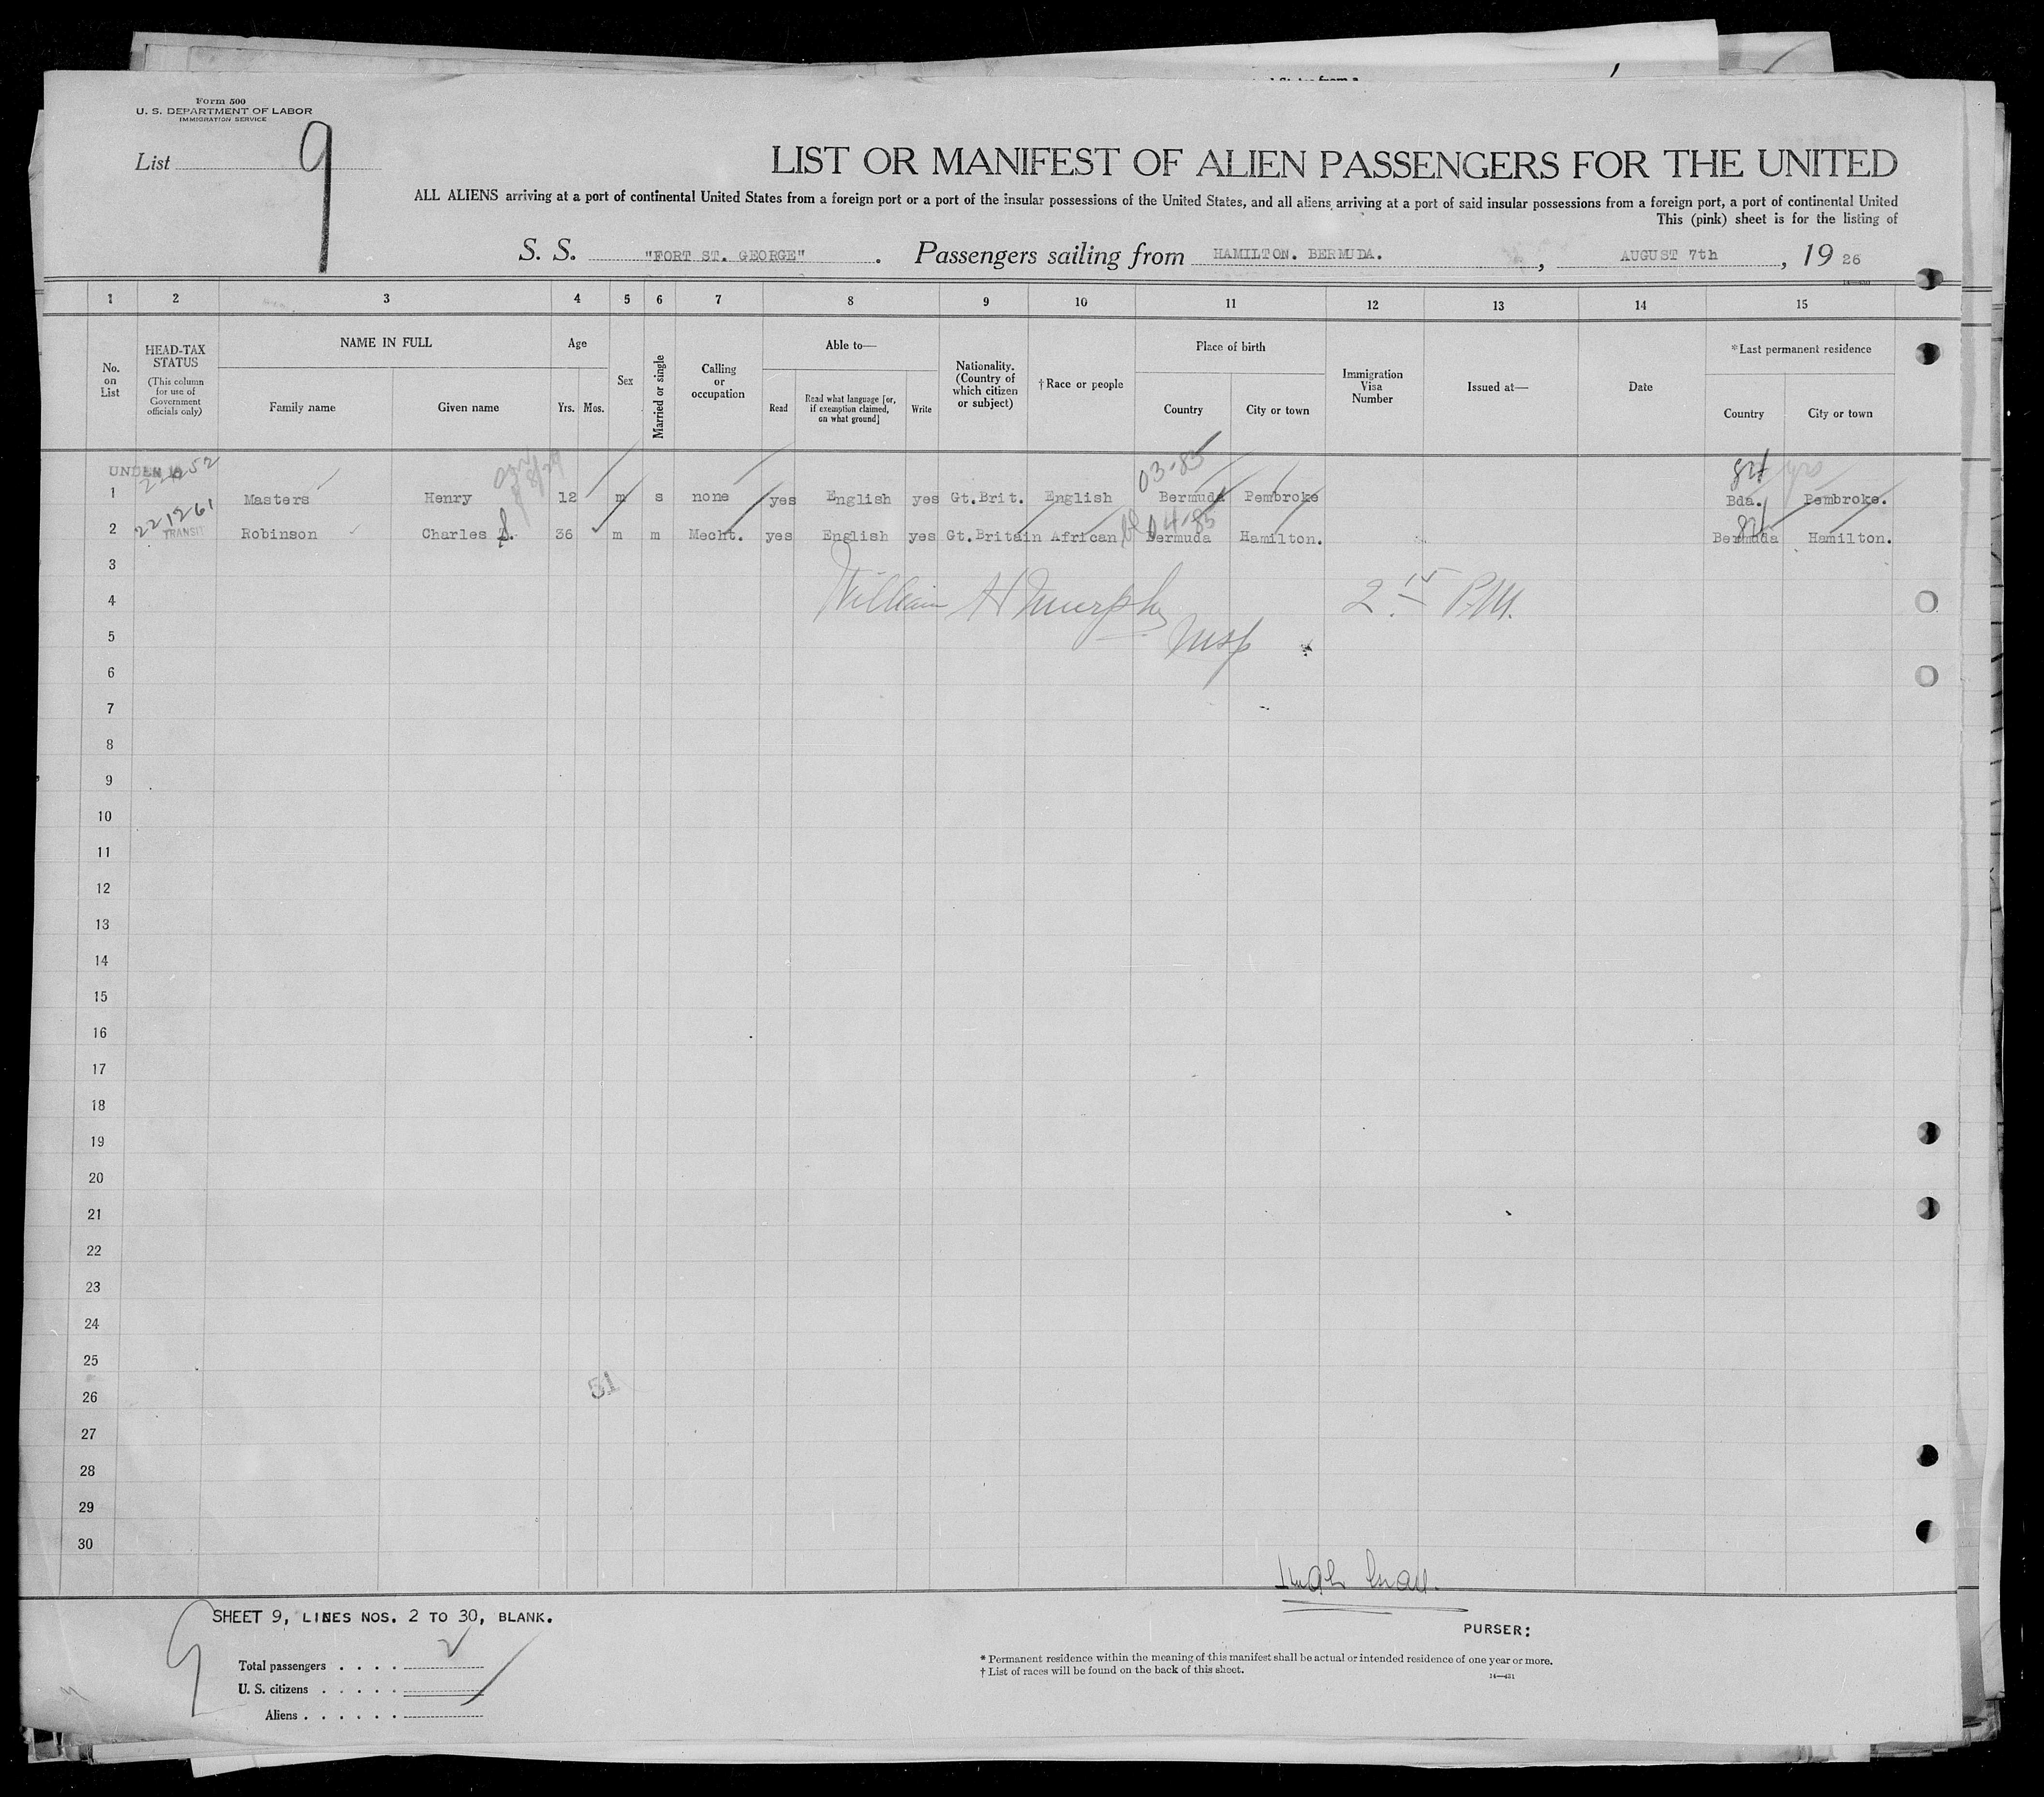 Form 500
U. S. DEPARTMENT OF LABOR
IMMIGRATION SERVICE
List 9
LIST OR MANIFEST OF ALIEN PASSENGERS FOR THE UNITED
ALL ALIENS arriving at a port of continental United States from a foreign port or a port of the insular possessions of the United States, and all aliens arriving at a port of said insular possessions from a foreign port, a port of continental United
This (pink) sheet is for the listing of
S. S. "FORT ST. GEORGE". Passengers sailing from HAMILTON. BERMUDA. , AUGUST 7th , 19 26
1 2 3 4 5 6 7 8 9 10 11 12 13 14 15
No. on List
HEAD-TAX STATUS
(This column for use of Government officials only)
NAME IN FULL
Family name
Given name
Age
Yrs. Mos.
Sex
Married or single
Calling or occupation
Able to—
Read
Read what language [or, if exemption claimed, on what ground]
Write
Nationality. (Country of which citizen or subject)
†Race or people
Place of birth
Country
City or town
Immigration Visa Number
Issued at—
Date
*Last permanent residence
Country
City or town
UNDER 16
03-85
1 Masters Henry 12 m s none yes English yes Gt.Brit. English Bermuda Pembroke Bda. Pembroke.
221261
04-85
2 TRANSIT Robinson Charles 36 m m Mecht. yes English yes Gt.Britain African Bermuda Hamilton. Bermuda Hamilton.
3
4 William H Murphy 2 15 P.M.
5 Insp
6
7
8
9
10
11
12
13
14
15
16
17
18
19
20
21
22
23
24
25
26 51
27
28
29
30
SHEET 9, LINES NOS. 2 TO 30, BLANK.
PURSER:
Total passengers . . . . 2
U. S. citizens . . . . .
Aliens . . . . . .
* Permanent residence within the meaning of this manifest shall be actual or intended residence of one year or more.
† List of races will be found on the back of this sheet.
14—431